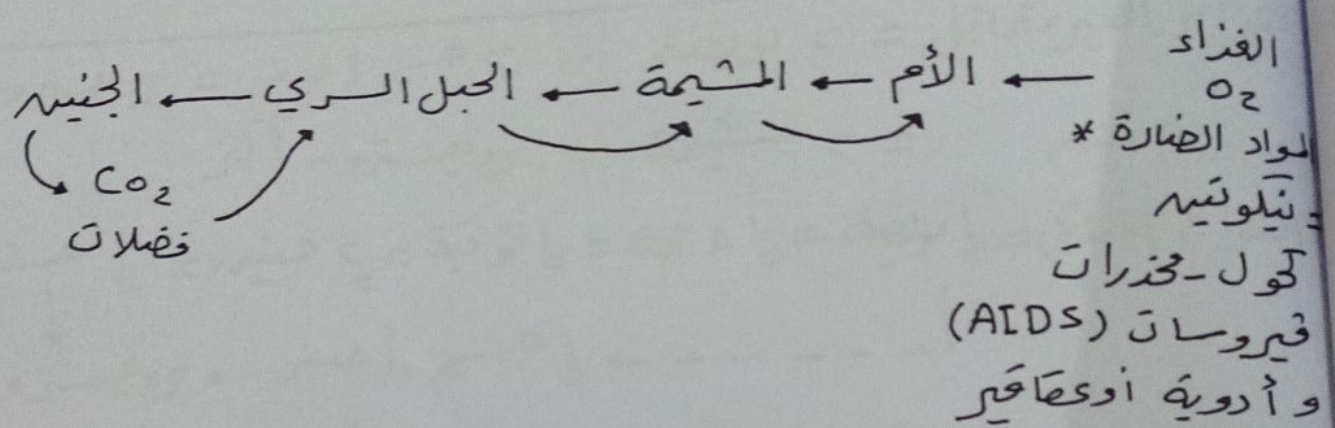 الغذاء
O₂ ← الأم ← المشيمة ← الحبل السري ← الجنين
المواد الضارة *
CO₂
= نيكوتين
فضلات
كحول - مخدرات
فيروسات (AIDS)
و أدوية أو عقاقير